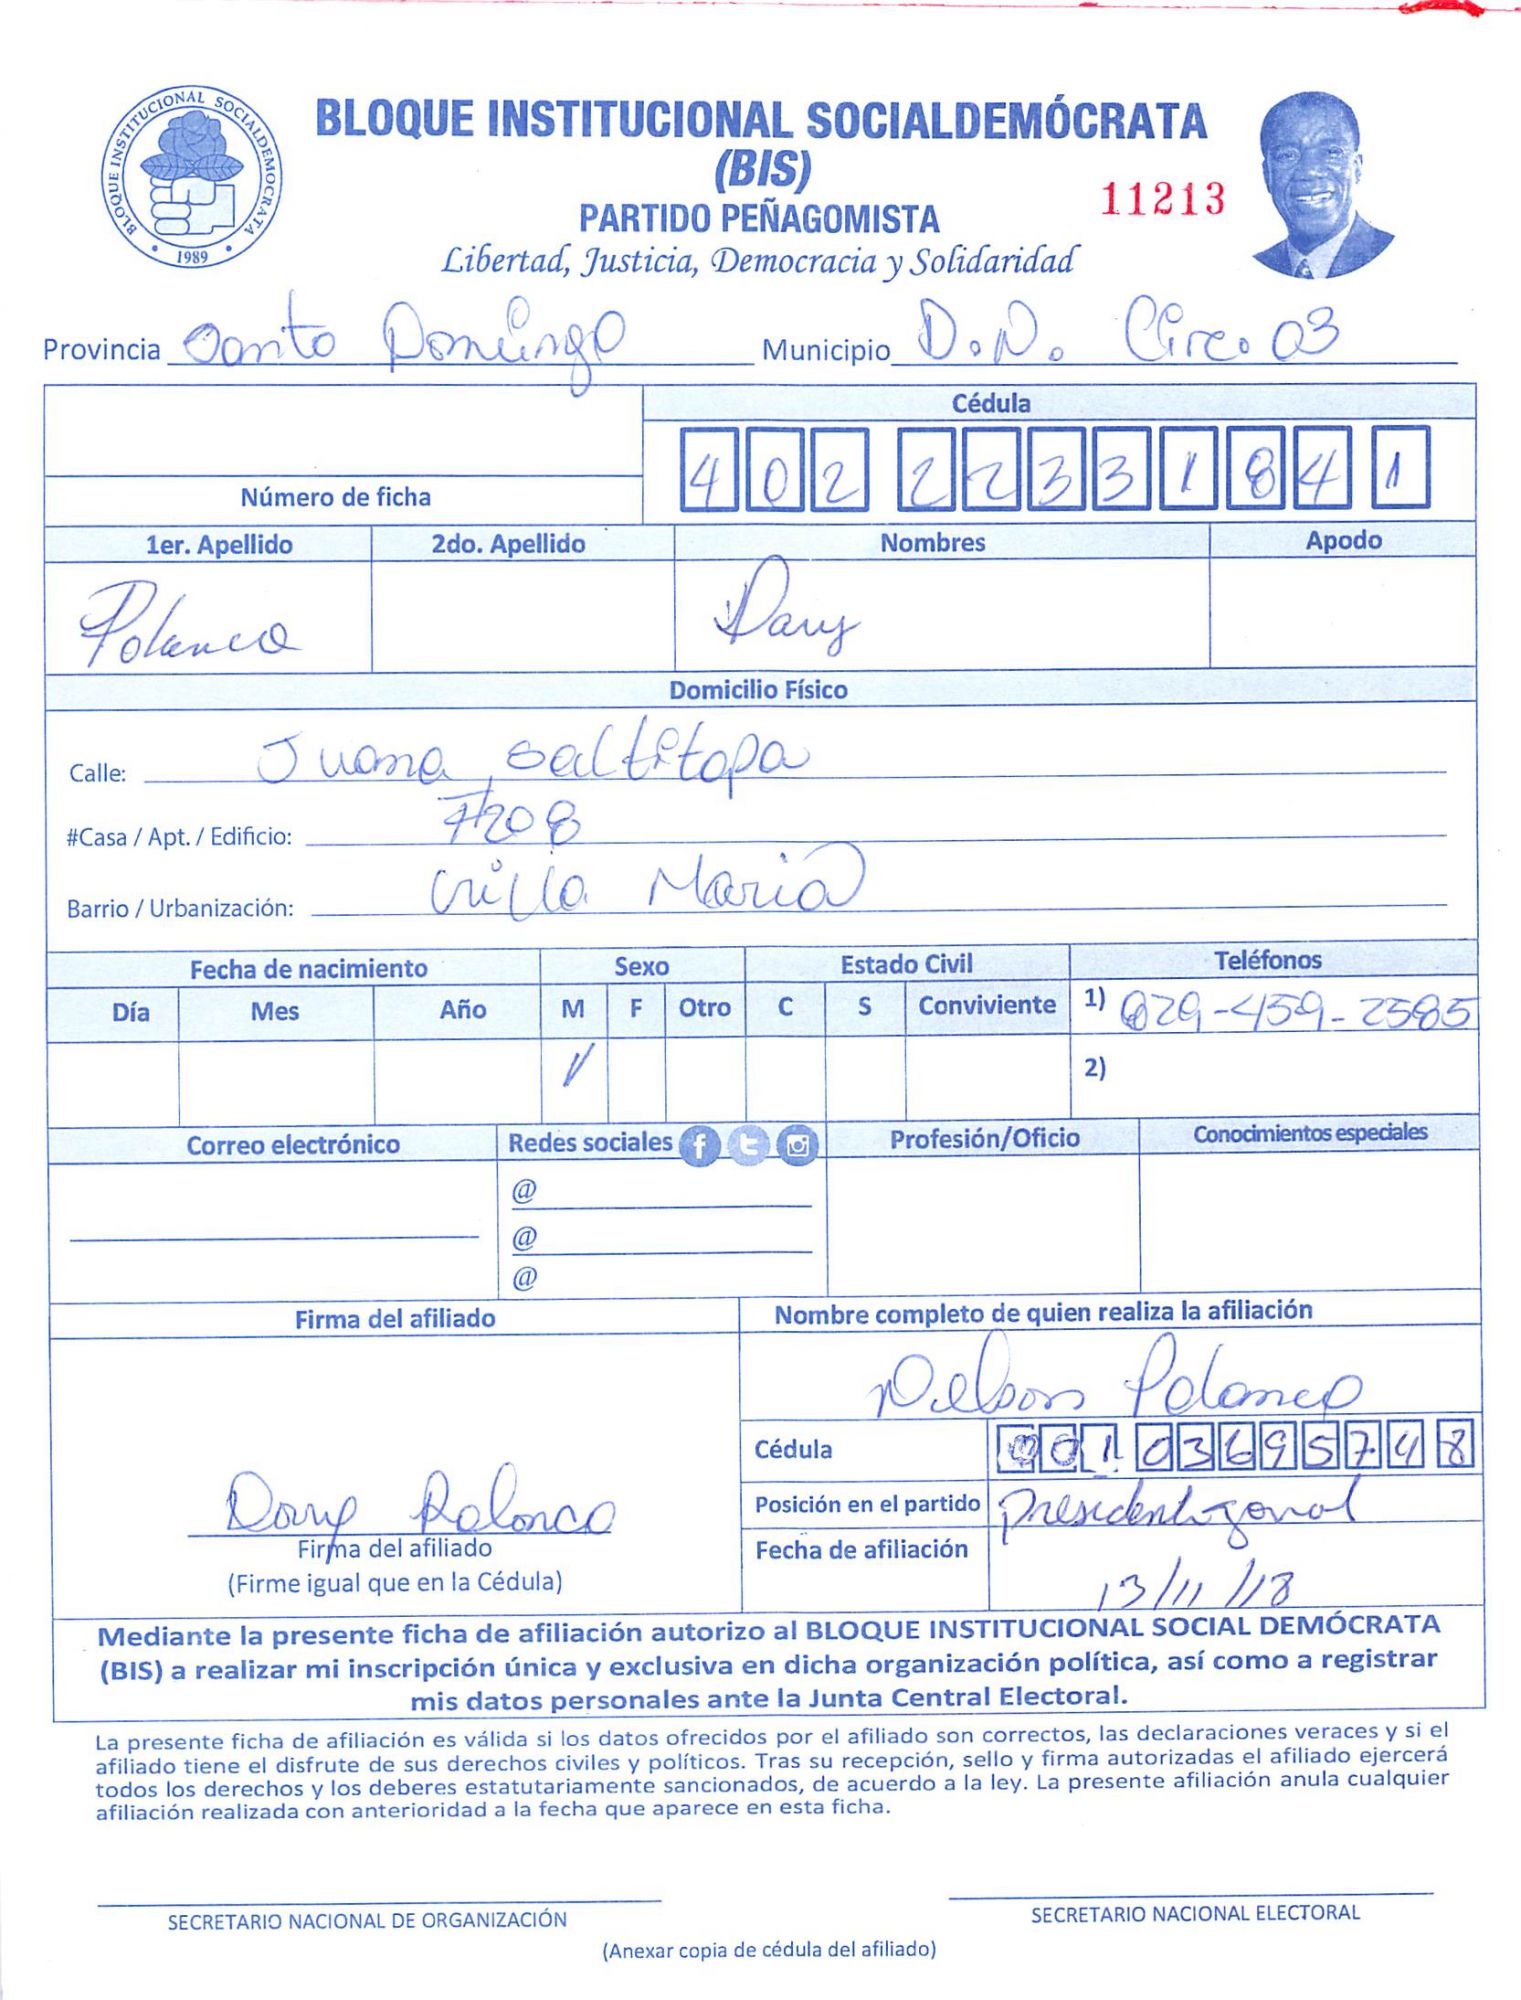 BLOQUE INSTITUCIONAL SOCIALDEMOCRATA
1989
BLOQUE INSTITUCIONAL SOCIALDEMÓCRATA
(BIS)
PARTIDO PEÑAGOMISTA
11213
Libertad, Justicia, Democracia y Solidaridad
Provincia Santo Domingo Municipio D.N. Circ. 03
Cédula
402 2233184 1
Número de ficha
1er. Apellido 2do. Apellido Nombres Apodo
Polanco Dary
Domicilio Físico
Calle: Juana saltitopa
#Casa / Apt. / Edificio: #208
Barrio / Urbanización: Villa Maria
Fecha de nacimiento Sexo Estado Civil Teléfonos
Día Mes Año M F Otro C S Conviviente 1) 829-459-2585
2)
Correo electrónico Redes sociales Profesión/Oficio Conocimientos especiales
@
@
@
Firma del afiliado Nombre completo de quien realiza la afiliación
Nelson Polanco
Cédula 001 0369574 8
Dary Polanco
Posición en el partido
Firma del afiliado
(Firme igual que en la Cédula)
Fecha de afiliación 13/11/18
Mediante la presente ficha de afiliación autorizo al BLOQUE INSTITUCIONAL SOCIAL DEMÓCRATA
(BIS) a realizar mi inscripción única y exclusiva en dicha organización política, así como a registrar
mis datos personales ante la Junta Central Electoral.
La presente ficha de afiliación es válida si los datos ofrecidos por el afiliado son correctos, las declaraciones veraces y si el
afiliado tiene el disfrute de sus derechos civiles y políticos. Tras su recepción, sello y firma autorizadas el afiliado ejercerá
todos los derechos y los deberes estatutariamente sancionados, de acuerdo a la ley. La presente afiliación anula cualquier
afiliación realizada con anterioridad a la fecha que aparece en esta ficha.
SECRETARIO NACIONAL DE ORGANIZACIÓN SECRETARIO NACIONAL ELECTORAL
(Anexar copia de cédula del afiliado)